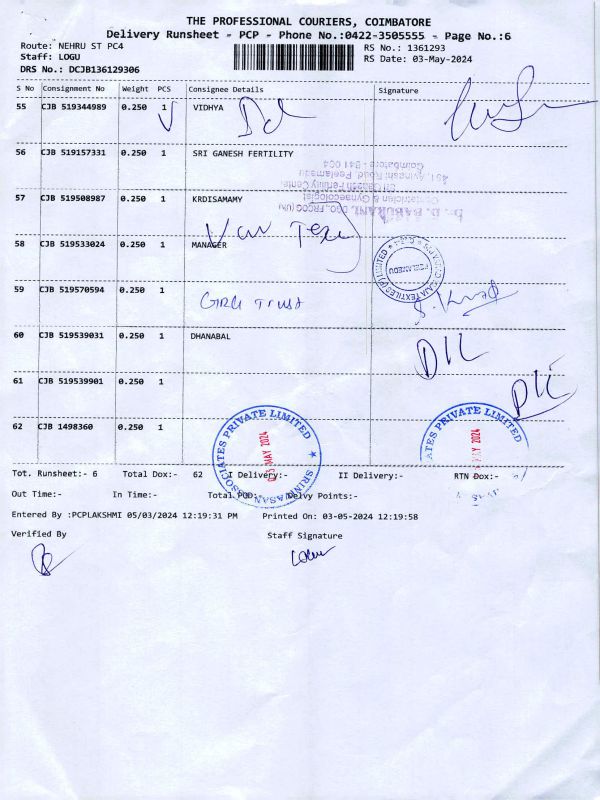 THE PROFESSIONAL COURIERS, COIMBATORE
Delivery Runsheet - PCP - Phone No.:0422-3505555 - Page No.:6
Route: NEHRU ST PC4
RS No.: 1361293
Staff: LOGU
RS Date: 03-May-2024
DRS No.: DCJB136129306
S No Consignment No Weight PCS Consignee Details Signature
55 CJB 519344989 0.250 1 VIDHYA
56 CJB 519157331 0.250 1 SRI GANESH FERTILITY
Dr. D. BABURANI, DGO., FRCOG (UK)
Obstetrician & Gynaecologist
Sri Ganesh Fertility Centre
491, Avinashi Road, Peelamedu
Coimbatore - 641 004
57 CJB 519508987 0.250 1 KRDISAMAMY
58 CJB 519533024 0.250 1 MANAGER
PEELAMEDU
59 CJB 519570594 0.250 1
Trust
60 CJB 519539031 0.250 1 DHANABAL
DK
61 CJB 519539901 0.250 1
DK
62 CJB 1498360 0.250 1
ASSOCIATES PRIVATE LIMITED ★ SRINIVASAN
MAY 2024
ATES PRIVATE LIMITED
MAY 2024
Tot. Runsheet:- 6 Total Dox:- 62 I Delivery:- II Delivery:- RTN Dox:-
Out Time:- In Time:- Total POD:- Delvy Points:-
Entered By :PCPLAKSHMI 05/03/2024 12:19:31 PM Printed On: 03-05-2024 12:19:58
Verified By Staff Signature